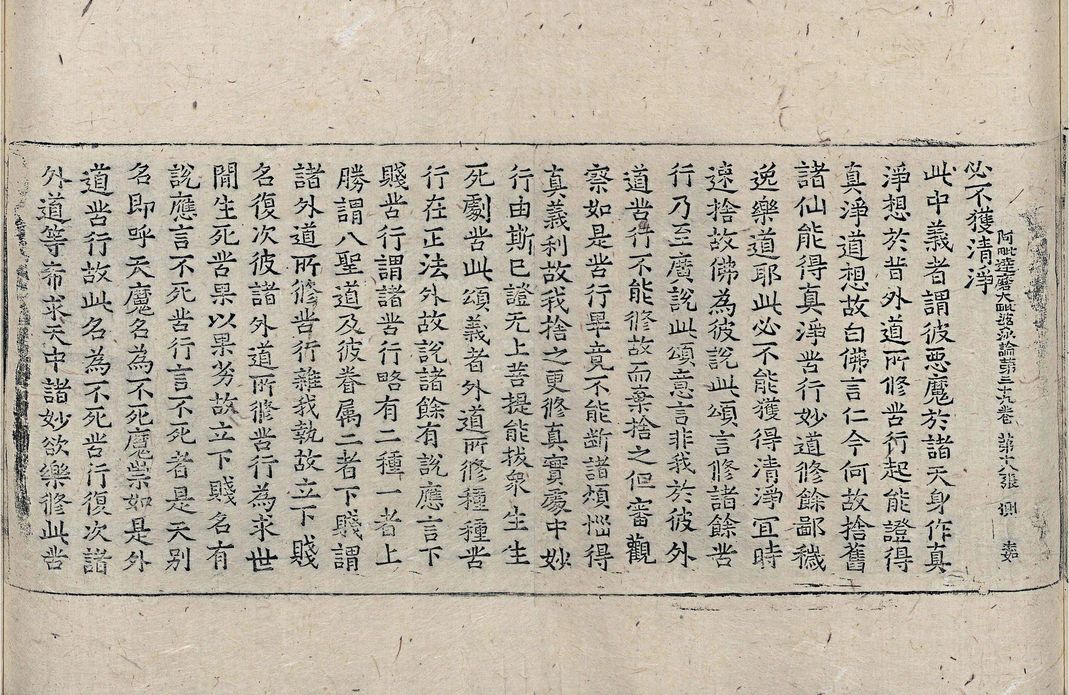 阿毗達磨大毗婆沙論第三十九卷 第六張 惻
必不獲清淨
此中義者謂彼惡魔於諸天身作真
淨想於昔外道所修苦行起能證得
真淨道想故白佛言仁今何故捨舊
諸仙能得真淨苦行妙道修餘鄙穢
逸樂道耶此必不能獲得清淨宜時
速捨故佛為彼說此頌言修諸餘苦
行乃至廣說此頌意言非我於彼外
道苦行不能修故而棄捨之但審觀
察如是苦行畢竟不能斷諸煩惱得
真義利故我捨之更修真實處中妙
行由斯已證无上菩提能拔衆生生
死劇苦此頌義者外道所修種種苦
行在正法外故說諸餘有說應言下
賤苦行謂諸苦行略有二種一者上
勝謂八聖道及彼眷属二者下賤謂
諸外道所修苦行雜我執故立下賤
名復次彼諸外道所修苦行為求世
間生死苦果以果劣故立下賤名有
說應言不死苦行言不死者是天别
名即呼天魔名為不死魔崇如是外
道苦行故此名為不死苦行復次諸
外道等希求天中諸妙欲樂修此苦